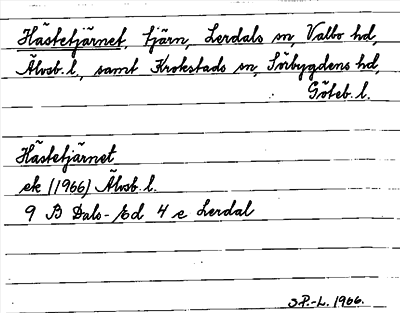 Hästetjärnet, tjärn, Lerdals sn, Valbo hd,
Älvsb. l., samt Krokstads sn, Sörbygdens hd,
Göteb. l.
Hästetjärnet
ek (1966) Älvsb. l.
9 B Dals-Ed 4 e Lerdal
S.P.-L. 1966.